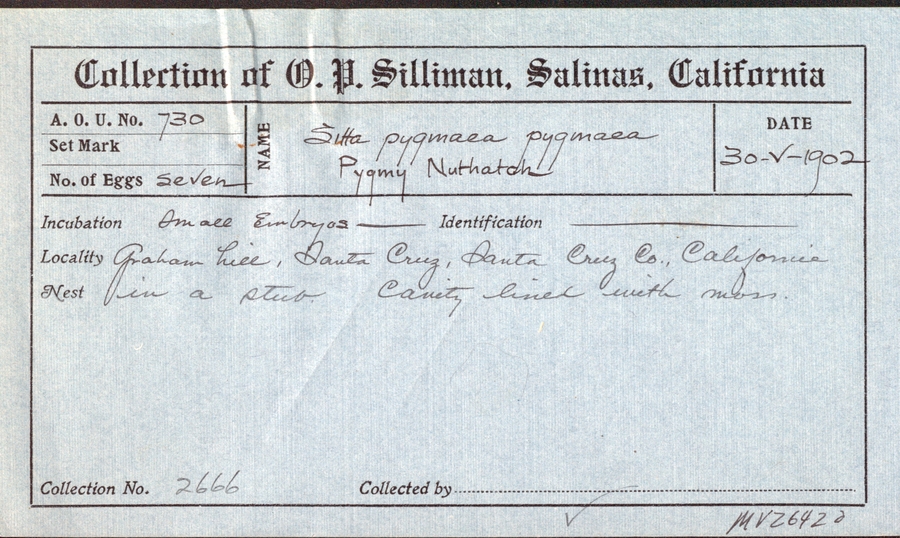 Collection of O. P. Silliman, Salinas, California
A. O. U. No. 730
Set Mark
No. of Eggs seven
NAME
Sitta pygmaea pygmaea
Pygmy Nuthatch
DATE
30-V-1902
Incubation Small Embryos — Identification —
Locality Graham hill, Santa Cruz, Santa Cruz Co., California
Nest in a stub. Cavity lined with moss.
Collection No. 2666
Collected by